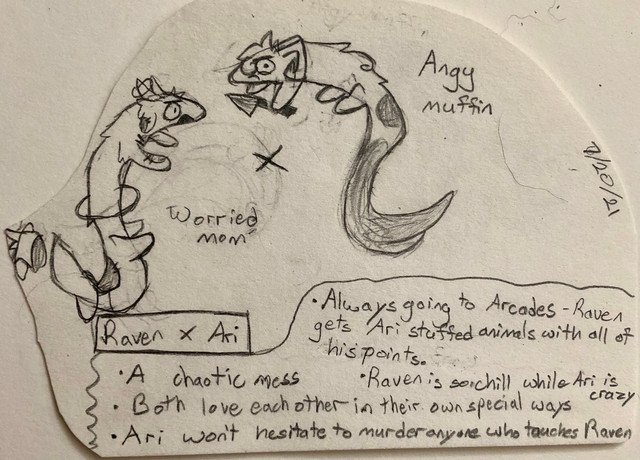 Angy
muffin
7/20/21
x
Worried
mom
Raven x Ari
• Always going to Arcades - Raven
gets Ari stuffed animals with all of
his points.
• A chaotic mess
• Raven is so chill while Ari is
crazy
• Both love each other in their own special ways
• Ari won't hesitate to murder anyone who touches Raven